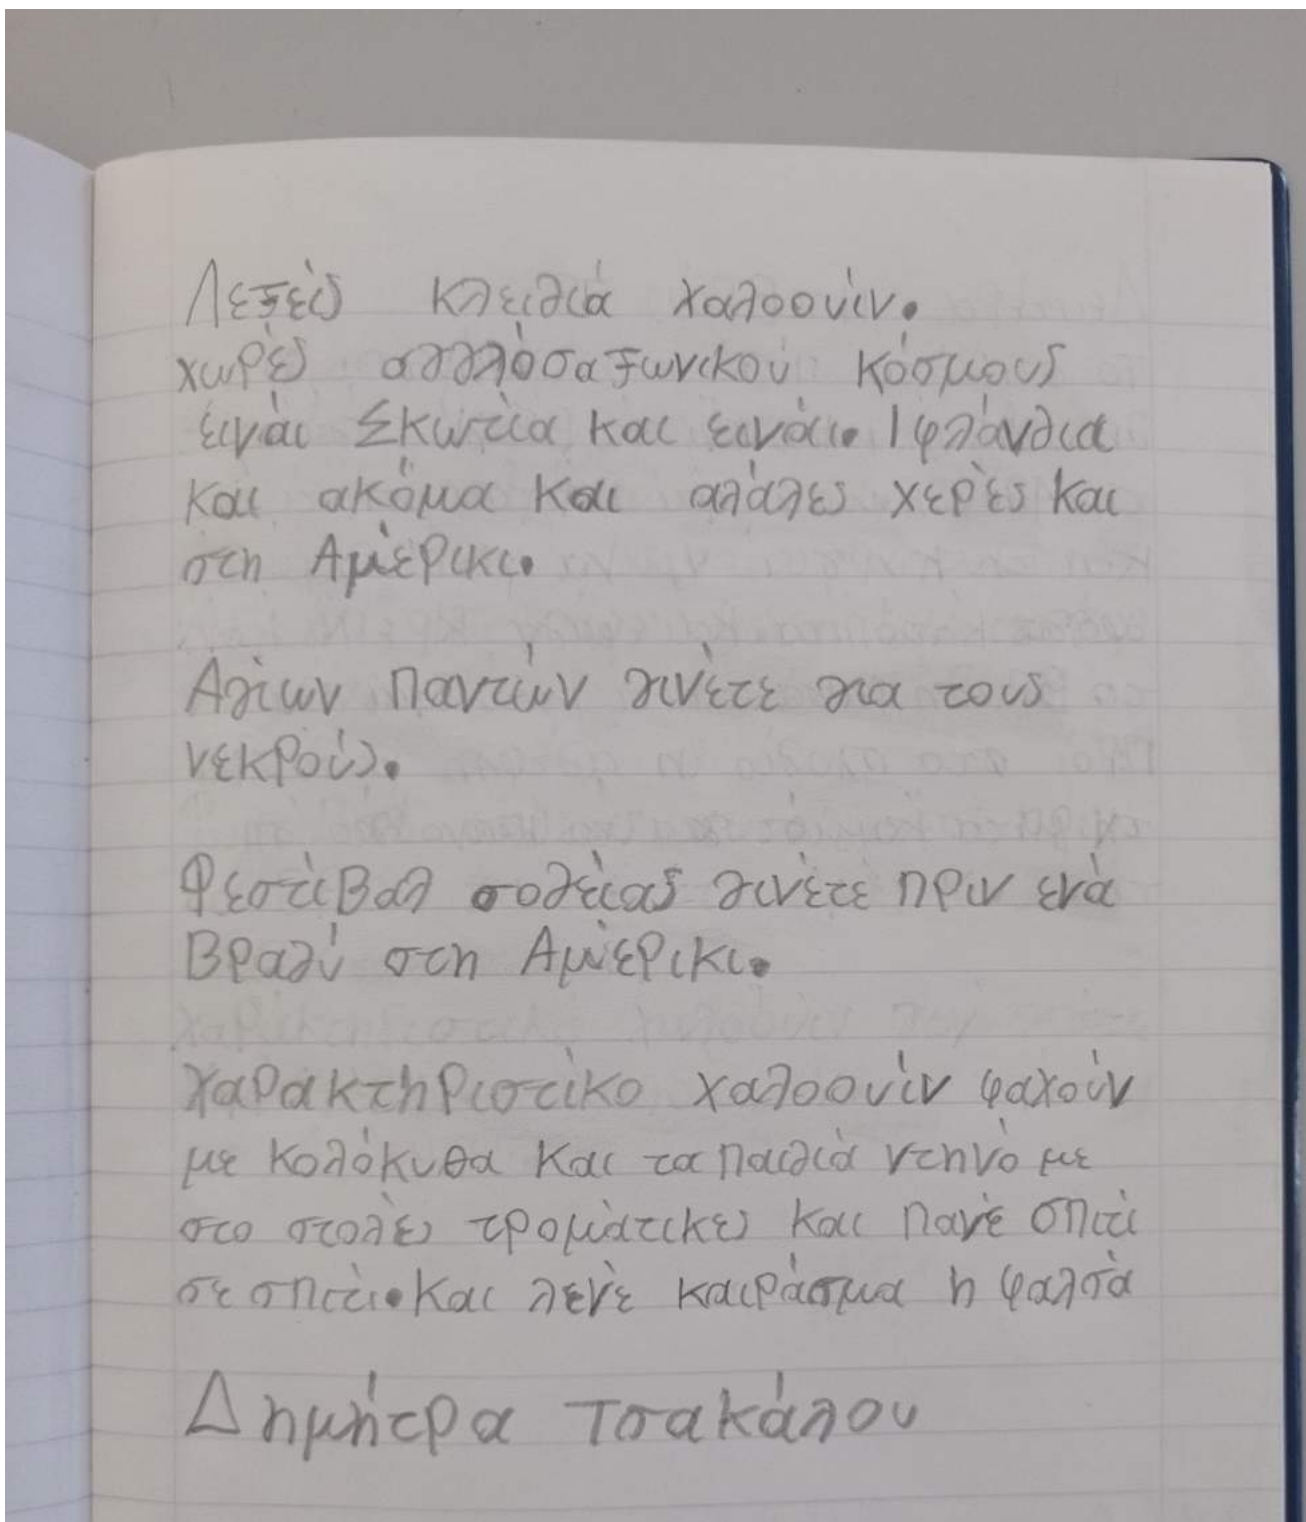 Λεξείς κλειδιά χαλοουίν.
χωρές αγγλόσαξωνικού κόσμους
είναι Σκωτία και εινάι. Ιφλάνδια
και ακόμα και αλάλες χερές και
στη Αμέρικι.
Αγίων Παντών γινέτε για τους
νεκρούς.
Φεστίβαλ σοδείας γινέτε πριν ενά
Βραδύ στη Αμέρικι.
Χαρακτηριστίκο χαλοουίν φαχούν
με κολόκυθα και τα παιδιά ντηνό με
στο στολές τρομάτικες και πανέ σπιτί
σε σπιτί. και λενέ καιράσμα η φαλσά
Δημήτρα Τσακάλου